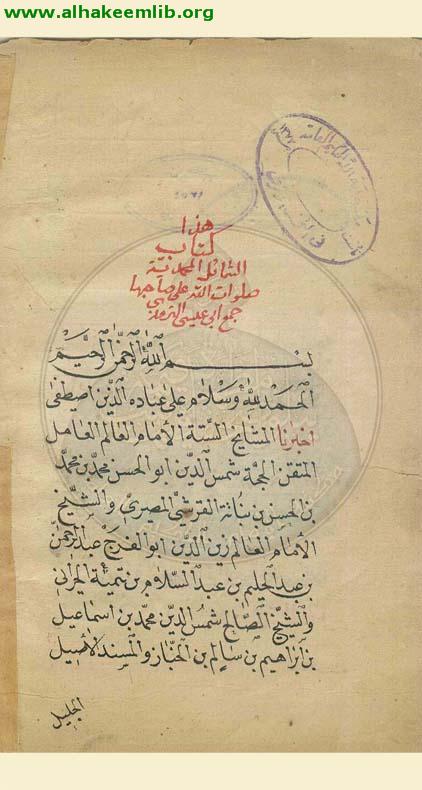 www.alhakeemlib.org
هذا
كتاب
الشمائل المحمدية
صلوات الله على صاحبها
جمع ابى عيسى الترمذي
بسم الله الرحمن الرحيم
الحمد لله وسلام على عباده الذين اصطفى
اخبرنا المشايخ الستة الأمام العالم العامل
المتقن الحجة شمس الدين ابو الحسن محمد بن محمد
بن الحسن بن نباتة القرشى المصرى والشيخ
الأمام العالم زين الدين ابو الفرج عبد الرحمن
بن عبد الحليم بن عبد السلام بن تيمية الحرانى
والشيخ الصالح شمس الدين محمد بن اسماعيل
بن ابراهيم بن سالم بن الخباز والمسند الأصيل
الجليل